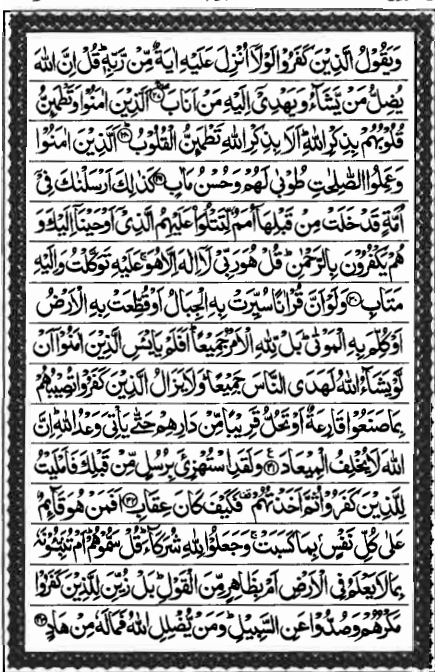 وَيَقُوْلُ الَّذِيْنَ كَفَرُوْا لَوْلَاۤ اُنْزِلَ عَلَيْهِ اٰيَةٌ مِّنْ رَّبِّهٖ ؕ قُلْ اِنَّ اللّٰهَ
يُضِلُّ مَنْ يَّشَآءُ وَيَهْدِىْۤ اِلَيْهِ مَنْ اَنَابَ ۖۚ‏﴿۲۷﴾ اَلَّذِيْنَ اٰمَنُوْا وَتَطْمَٮِٕنُّ
قُلُوْبُهُمْ بِذِكْرِ اللّٰهِ ؕ اَلَا بِذِكْرِ اللّٰهِ تَطْمَٮِٕنُّ الْقُلُوْبُ ؕ‏﴿۲۸﴾ اَلَّذِيْنَ اٰمَنُوْا
وَعَمِلُوا الصّٰلِحٰتِ طُوْبٰى لَهُمْ وَحُسْنُ مَاٰبٍ‏﴿۲۹﴾ كَذٰلِكَ اَرْسَلْنٰكَ فِىْۤ
اُمَّةٍ قَدْ خَلَتْ مِنْ قَبْلِهَاۤ اُمَمٌ لِّتَتْلُوَا۟ عَلَيْهِمُ الَّذِىْۤ اَوْحَيْنَاۤ اِلَيْكَ وَ
هُمْ يَكْفُرُوْنَ بِالرَّحْمٰنِ ؕ قُلْ هُوَ رَبِّىْ لَاۤ اِلٰهَ اِلَّا هُوَ ۚ عَلَيْهِ تَوَكَّلْتُ وَاِلَيْهِ
مَتَابِ‏﴿۳۰﴾ وَلَوْ اَنَّ قُرْاٰنًا سُيِّرَتْ بِهِ الْجِبَالُ اَوْ قُطِّعَتْ بِهِ الْاَرْضُ
اَوْ كُلِّمَ بِهِ الْمَوْتٰى ؕ بَلْ لِّلّٰهِ الْاَمْرُ جَمِيْعًا ؕ اَفَلَمْ يَايْـَٔسِ الَّذِيْنَ اٰمَنُوْۤا اَنْ
لَّوْ يَشَآءُ اللّٰهُ لَهَدَى النَّاسَ جَمِيْعًا ؕ وَلَا يَزَالُ الَّذِيْنَ كَفَرُوْا تُصِيْبُهُمْ
بِمَا صَنَعُوْا قَارِعَةٌ اَوْ تَحُلُّ قَرِيْبًا مِّنْ دَارِهِمْ حَتّٰى يَاْتِىَ وَعْدُ اللّٰهِ ؕ اِنَّ
اللّٰهَ لَا يُخْلِفُ الْمِيْعَادَ‏﴿۳۱﴾ وَلَقَدِ اسْتُهْزِئَ بِرُسُلٍ مِّنْ قَبْلِكَ فَاَمْلَيْتُ
لِلَّذِيْنَ كَفَرُوْا ثُمَّ اَخَذْتُهُمْ فَكَيْفَ كَانَ عِقَابِ‏﴿۳۲﴾ اَفَمَنْ هُوَ قَآٮِٕمٌ
عَلٰى كُلِّ نَفْسٍۢ بِمَا كَسَبَتْ ۚ وَجَعَلُوْا لِلّٰهِ شُرَكَآءَ ؕ قُلْ سَمُّوْهُمْ ؕ اَمْ تُنَبِّـُٔوْنَهٗ
بِمَا لَا يَعْلَمُ فِى الْاَرْضِ اَمْ بِظَاهِرٍ مِّنَ الْقَوْلِ ؕ بَلْ زُيِّنَ لِلَّذِيْنَ كَفَرُوْا
مَكْرُهُمْ وَصُدُّوْا عَنِ السَّبِيْلِ ؕ وَمَنْ يُّضْلِلِ اللّٰهُ فَمَا لَهٗ مِنْ هَادٍ‏﴿۳۳﴾